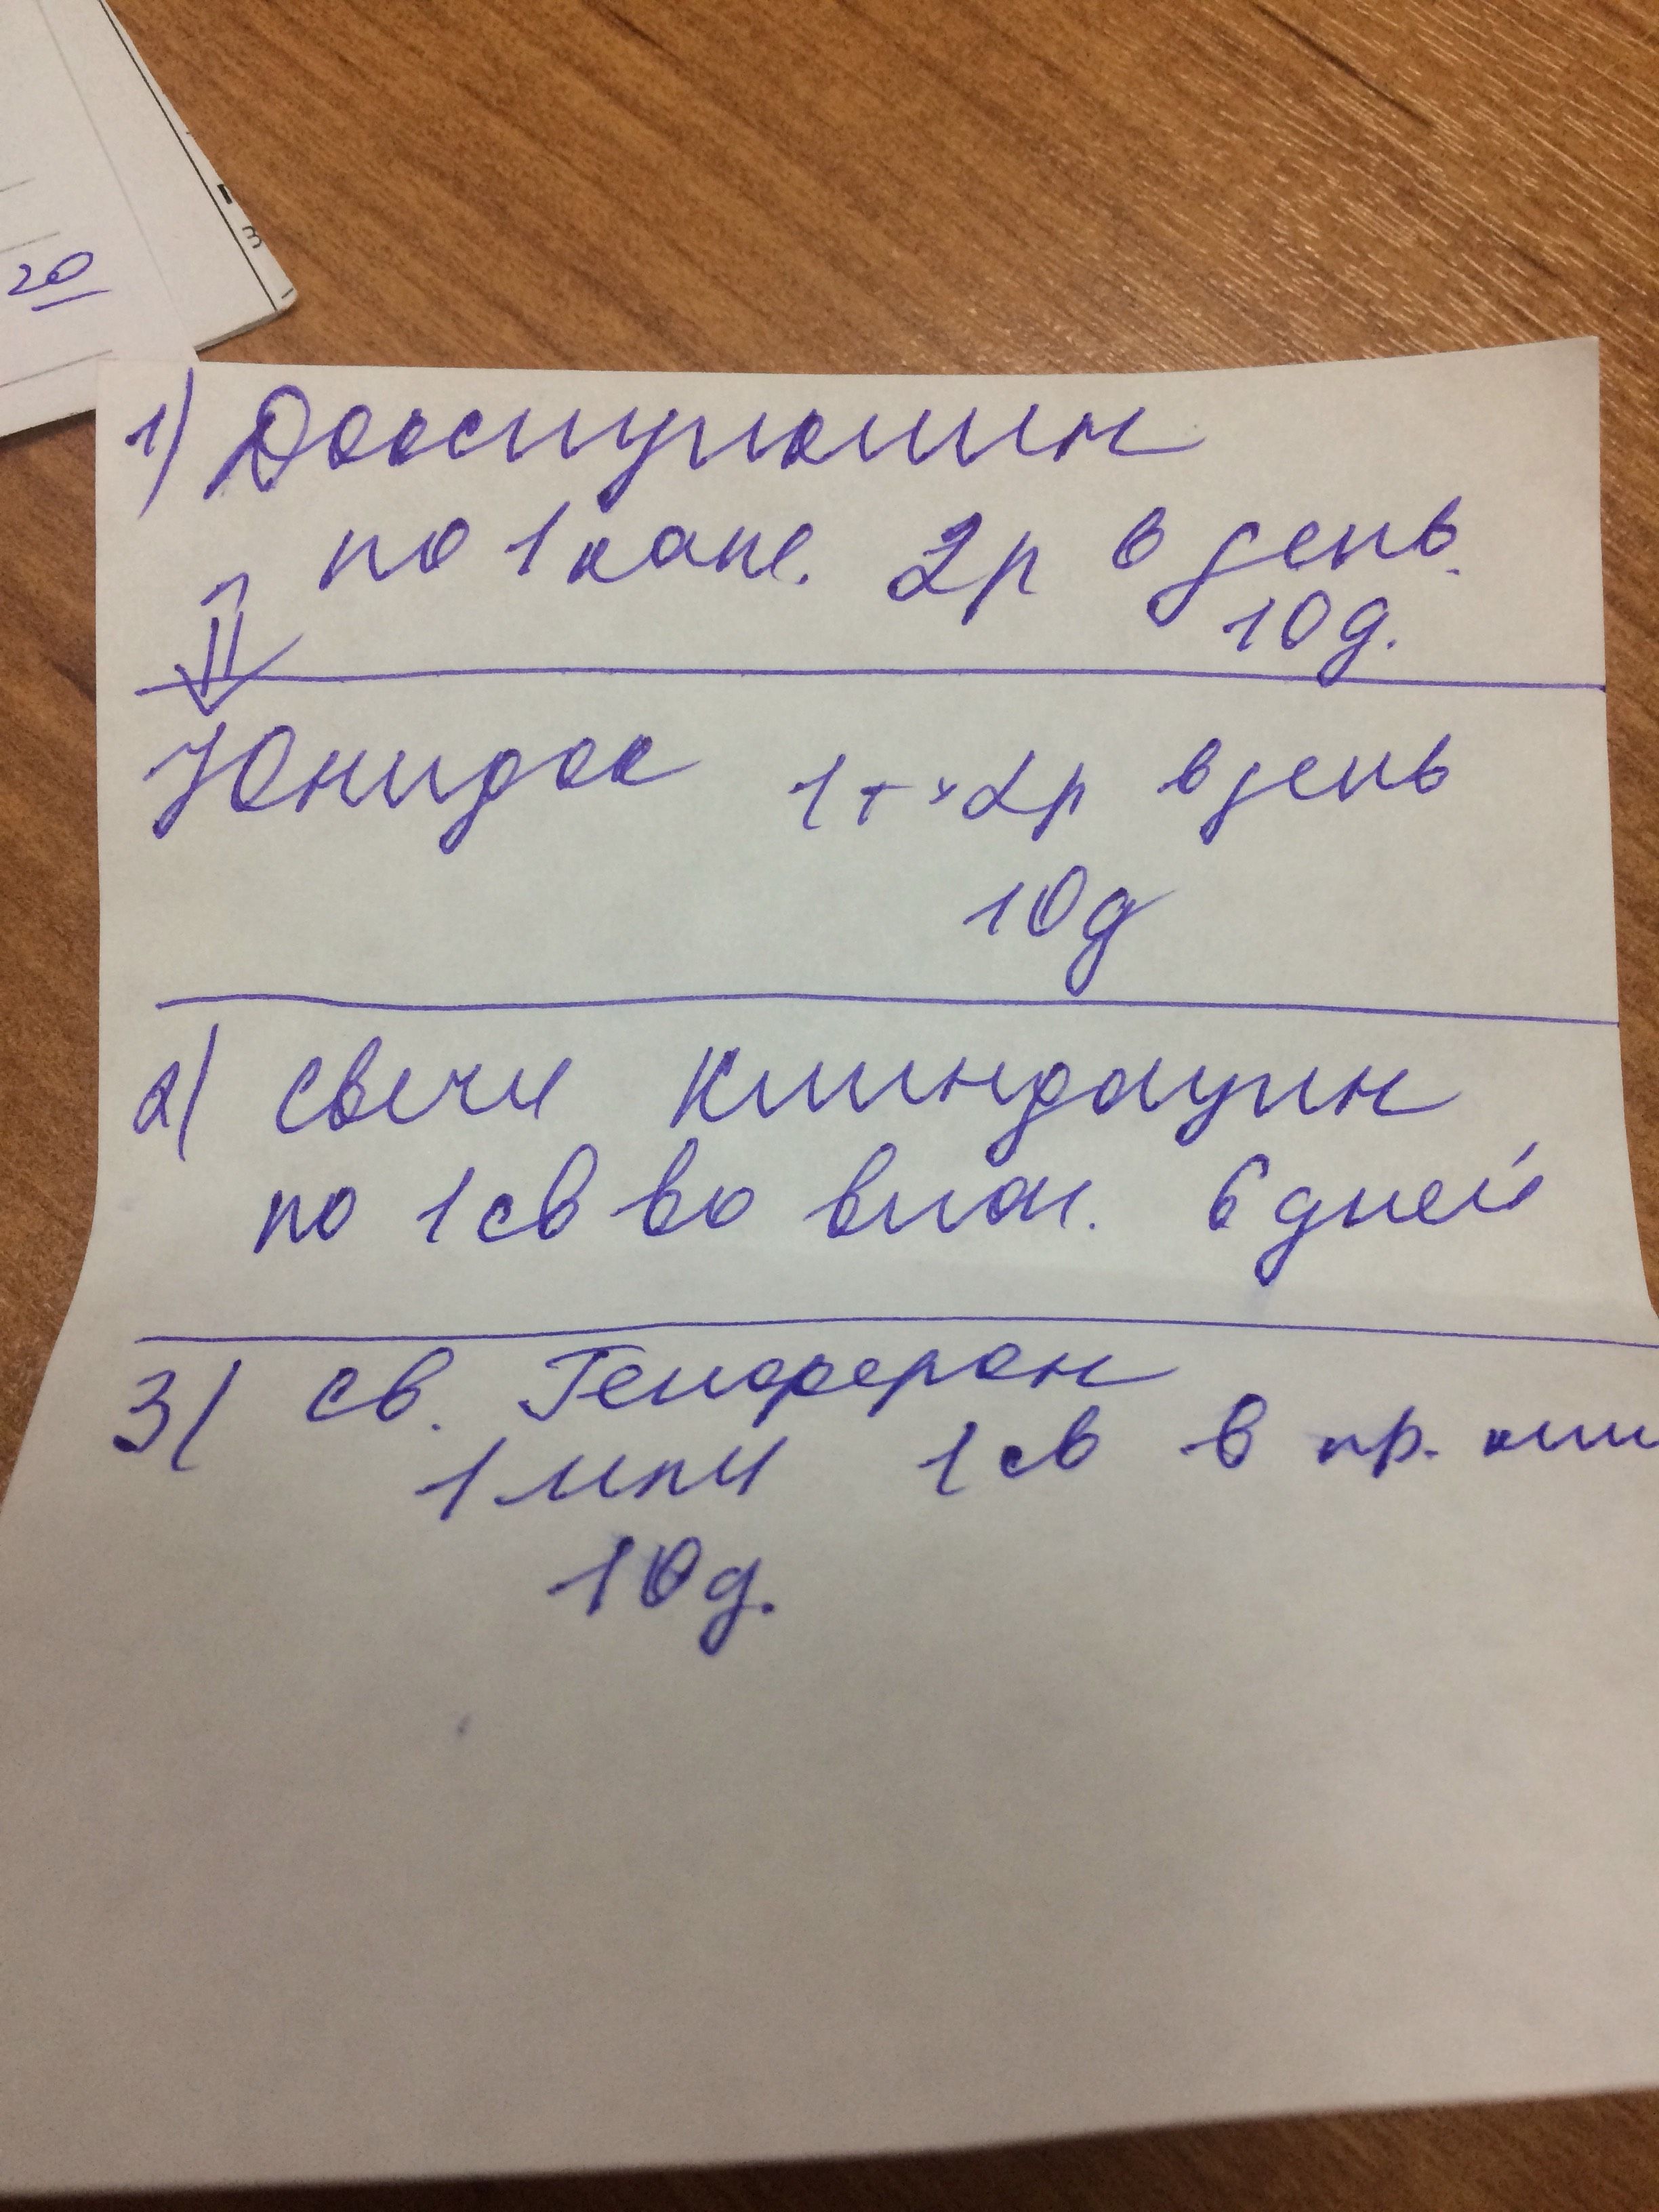 20
3
1) Доксициклин
по 1 капс. 2р в день.
10д.
Юнидокс 1т × 2р в день
10д
2) свечи Клиндацин
по 1 св во влаг. 6 дней
3) св. Генферон
1 млн 1 св в пр. киш
10д.